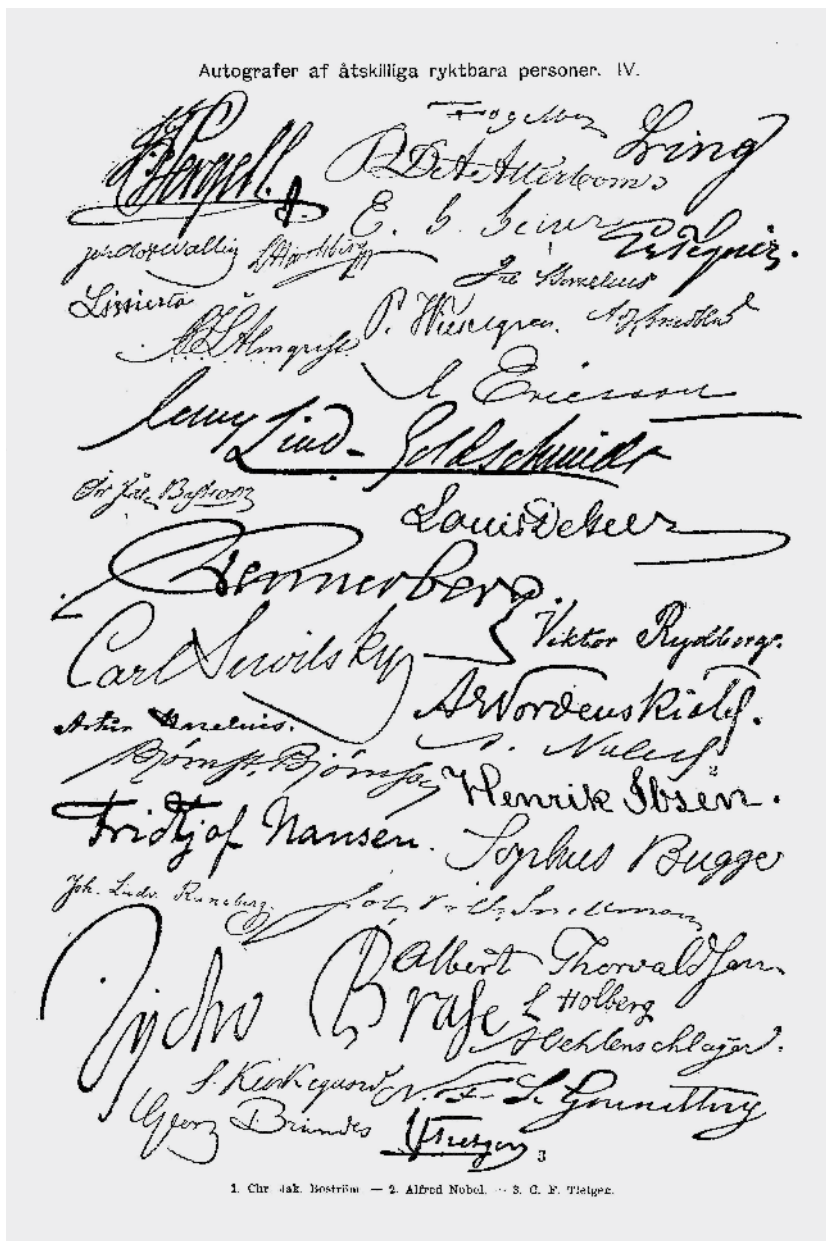 Autografer af åtskilliga ryktbara personer. IV.
Sergell.
Fogelberg
Ling
P. D. A. Atterbom.
E. G. Geijer
Es. Tegnér.
Joh. Ol. Wallin
L. Hierta
C. J. L. Almqvist.
P. Wieselgren.
J. Ericsson
Jenny Lind-Goldschmidt
Louis De Geer
Wennerberg.
Carl Snoilsky
Viktor Rydberg.
A E Nordenskiöld.
Artur Hazelius.
A. Nobel
2
Bjørnst. Bjørnson
Henrik Ibsen.
Fridtjof Nansen.
Sophus Bugge
Joh. Ludv. Runeberg.
Joh. Vilh. Snellman
Albert Thorvaldsen
Tycho Brahe
L Holberg
A Oehlenschläger.
S. Kierkegaard
N. F. S. Grundtvig
Georg Brandes
CFTietgen
3
1. Chr. Jak. Boström — 2. Alfred Nobel. — 3. C. F. Tietgen.